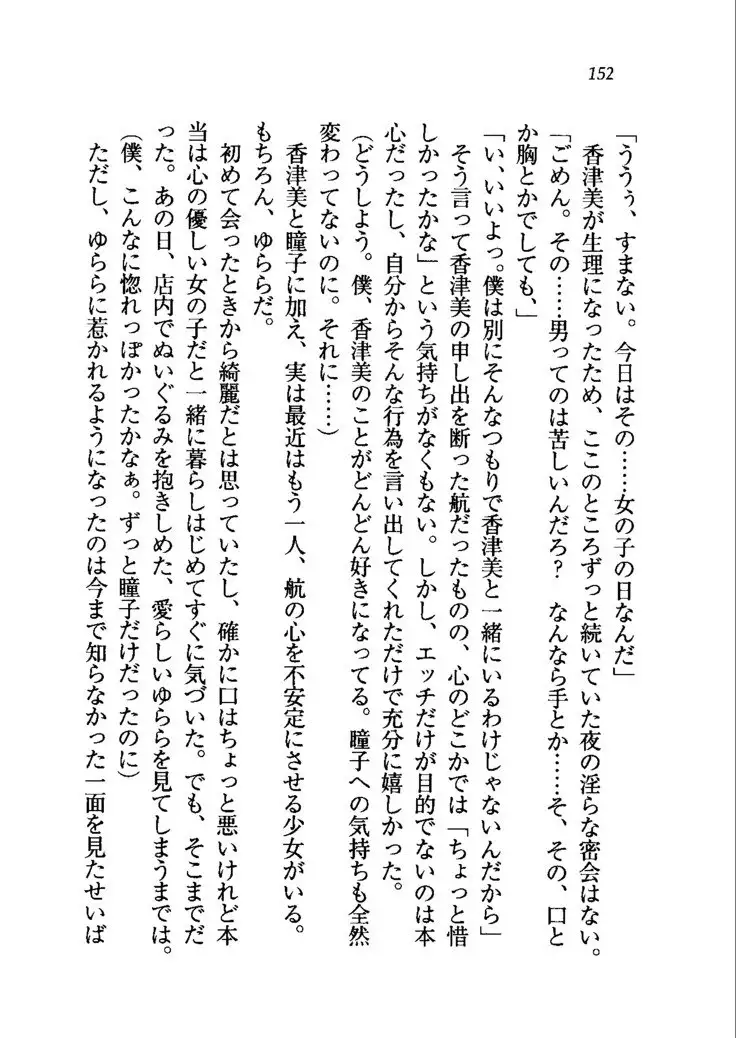 152
「ううぅ、すまない。今日はその……女の子の日なんだ」
香津美が生理になったため、ここのところずっと続いていた夜の淫らな密会はない。
「ごめん。その……男ってのは苦しいんだろ？　なんなら手とか……そ、その、口と
か胸とかでしても、」
「い、いいよっ。僕は別にそんなつもりで香津美と一緒にいるわけじゃないんだから」
そう言って香津美の申し出を断った航だったものの、心のどこかでは「ちょっと惜
しかったかな」という気持ちがなくもない。しかし、エッチだけが目的でないのは本
心だったし、自分からそんな行為を言い出してくれただけで充分に嬉しかった。
（どうしよう。僕、香津美のことがどんどん好きになってる。瞳子への気持ちも全然
変わってないのに。それに……）
香津美と瞳子に加え、実は最近はもう一人、航の心を不安定にさせる少女がいる。
もちろん、ゆららだ。
初めて会ったときから綺麗だとは思っていたし、確かに口はちょっと悪いけれど本
当は心の優しい女の子だと一緒に暮らしはじめてすぐに気づいた。でも、そこまでだ
った。あの日、店内でぬいぐるみを抱きしめた、愛らしいゆららを見てしまうまでは。
（僕、こんなに惚れっぽかったかなぁ。ずっと瞳子だけだったのに）
ただし、ゆららに惹かれるようになったのは今まで知らなかった一面を見たせいば